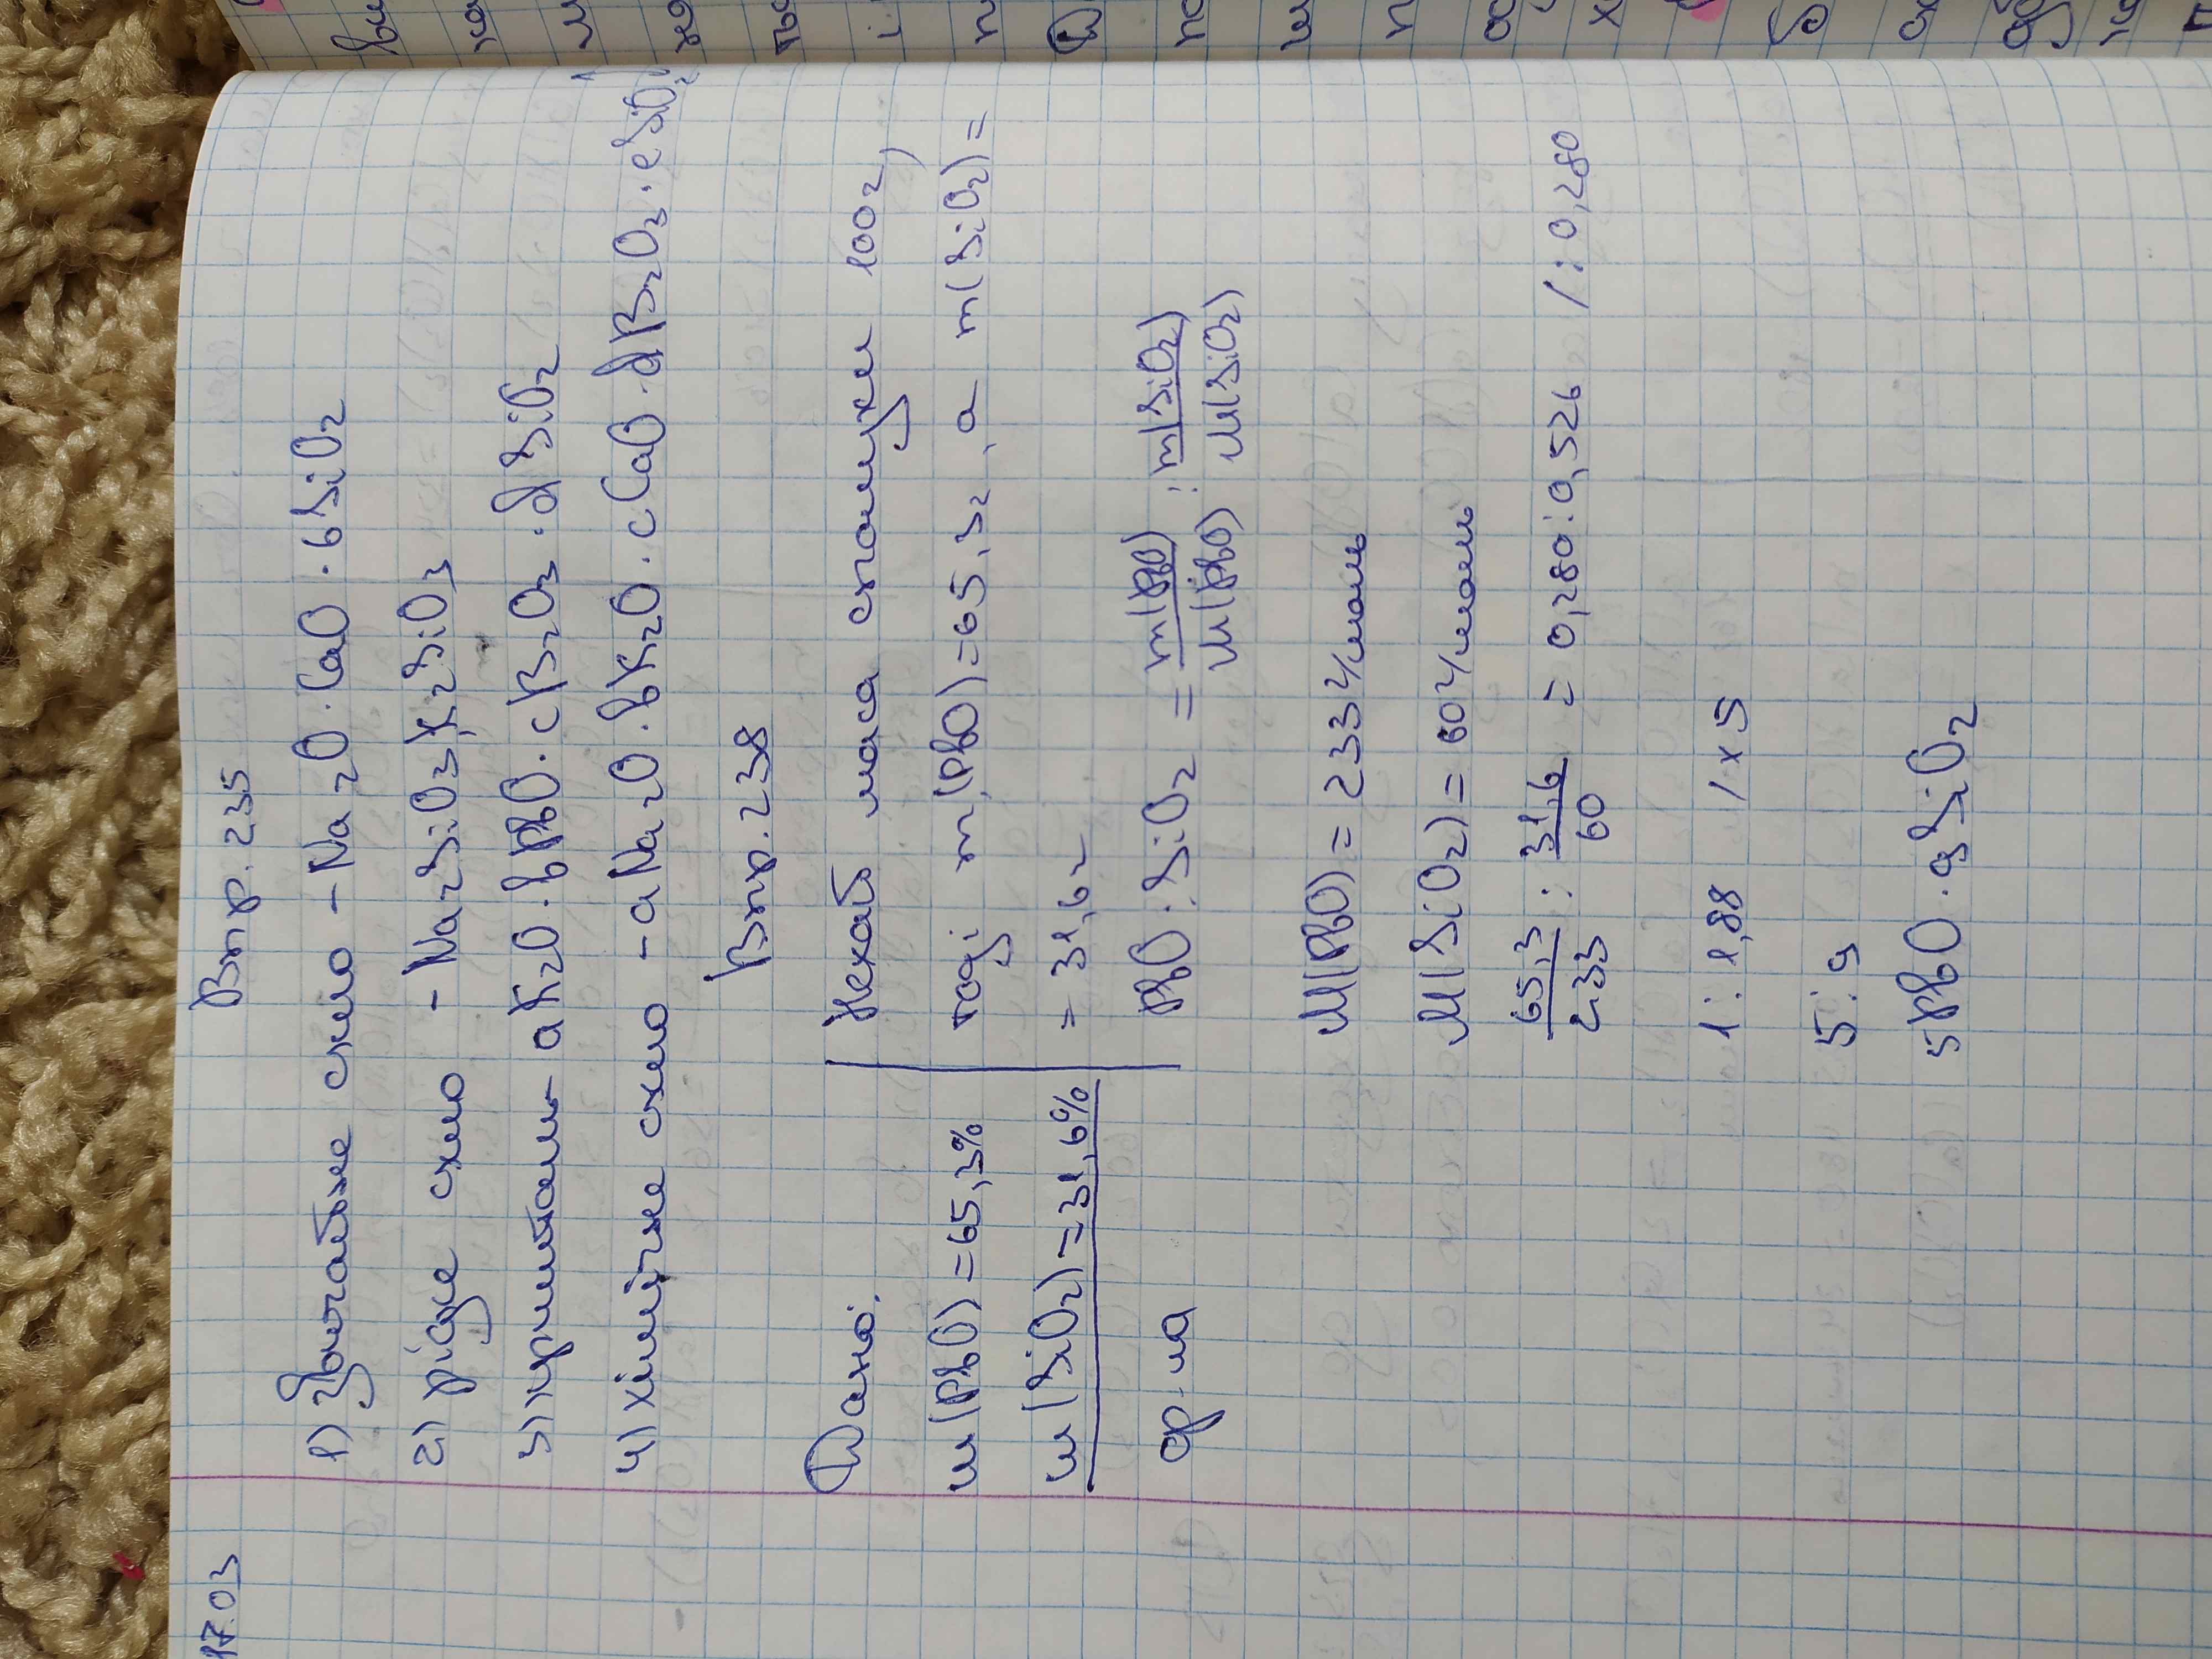 17.03
Впр. 235
1) Звичайне скло - Na2O · CaO · 6SiO2
2) рідке скло - Na2SiO3, K2SiO3
3) кришталь - aK2O · bPbO · cB2O3 · dSiO2
4) хімічне скло - aNa2O · bK2O · cCaO · dB2O3 · eSiO2
Впр. 238
Дано:
w(PbO) = 65,3%
w(SiO2) = 31,6%
ф-ла
Нехай маса становить 100г,
тоді m(PbO) = 65,3г, а m(SiO2) =
= 31,6г
PbO : SiO2 = m(PbO)/M(PbO) : m(SiO2)/M(SiO2)
M(PbO) = 233 г/моль
M(SiO2) = 60 г/моль
65,3/233 : 31,6/60 = 0,280 : 0,526 /: 0,280
1 : 1,88 / x 5
5 : 9
5PbO · 9SiO2